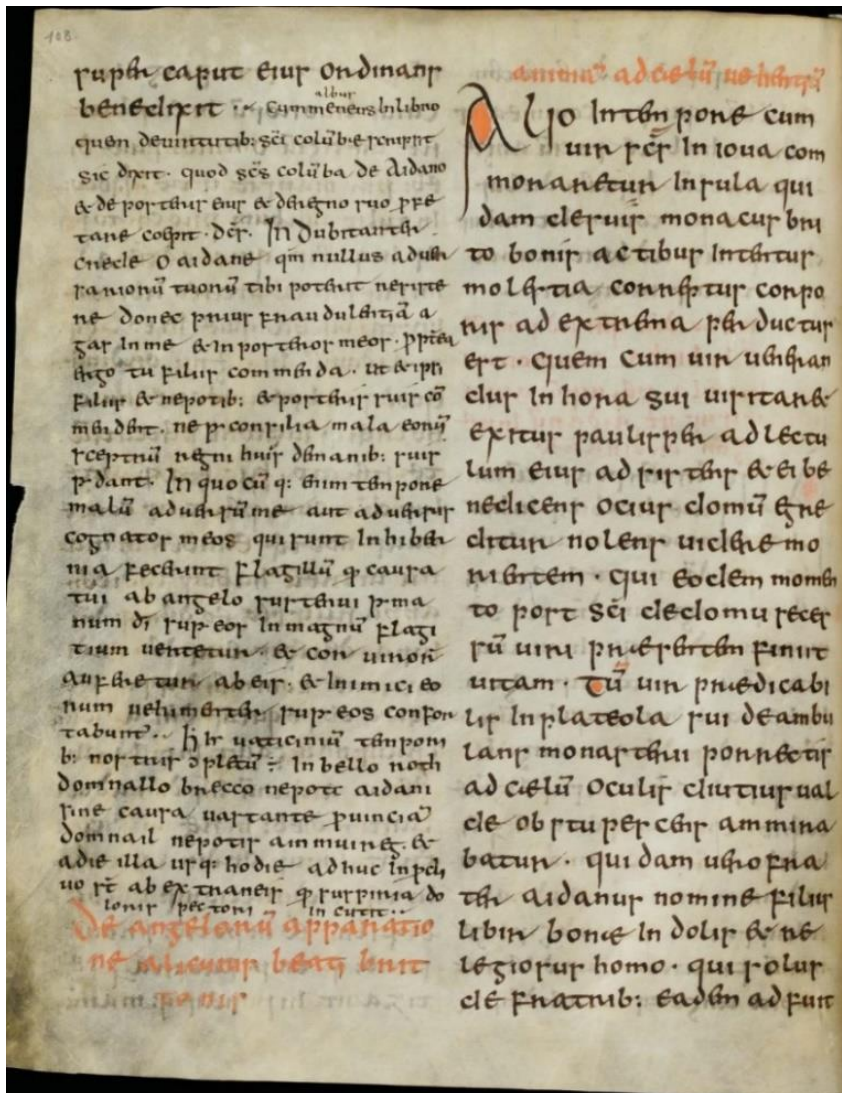 108
super caput eius ordinans
benedixit ·:~ Cummeneus in libro
albus
quem de uirtutib: sc̄i colūbae scripsit
sic dixit · quod sc̄s colūba de Aidano
& de posteris eius & de regno suo profe
tare coepit · dc̄s · Indubitanter
crede O aidane qm̄ nullus aduer
sariorū tuorū tibi poterit resiste
re donec prius fraudulentiā a
gas In me & in posteros meos · propterea
ergo tu filiis commenda · ut & ipsi
filiis & nepotib: & posteris suis cō
mendent · ne p consilia mala eorū
sceptrū regni huius de manib: suis
p dant · In quo cū q: enim tempore
malū aduersū me aut aduersus
cognatos meos qui sunt In hiber
nia fecerint flagillū q causa
tui ab angelo sustenui p ma
num dī sup eos In magnū flagi
tium uertetur · & cor uirorū
auferetur ab eis · & Inimici eo
rum uehimenter sup eos confor
tabunt · · Hoc uaticiniū tempori
b: nostris ɔpletū ÷ In bello roth
domnallo brecco nepote aidani
sine causa uastante prouinciā
domnail nepotis ainmuireg · &
a die illa usq: hodie adhuc In procli
uo st̄ ab extraneis q suspiria do
loris pectori incutit · ·
De angelorū apparatio
ne alicuius beati brit
tonis
animā ad caelū uehentiū
Alio In tempore cum
uir sc̄s In ioua com
moraretur Insula qui
dam de suis monacus bri
to bonis actibus Intentus
molestia correptus corpo
ris ad extrema per ductus
est · Quem Cum uir ueneran
dus In hora sui uisitaret
exitus paulisper ad lectu
lum eius adsistens & ei be
nedicens ocius domū egre
ditur nolens uidere mo
rientem · Qui eodem momen
to post sc̄i de domu seces
sū uiri praesentem finiit
uitam · Tū uir praedicabi
lis In plateola sui deambu
lans monasterii porrectis
ad caelū Oculis diutius ual
de obstupescens ammira
batur · quidam uero fra
ter aidanus nomine filius
libir bonae In dolis & re
legiosus homo · qui solus
de fratrib: eadem adfuit